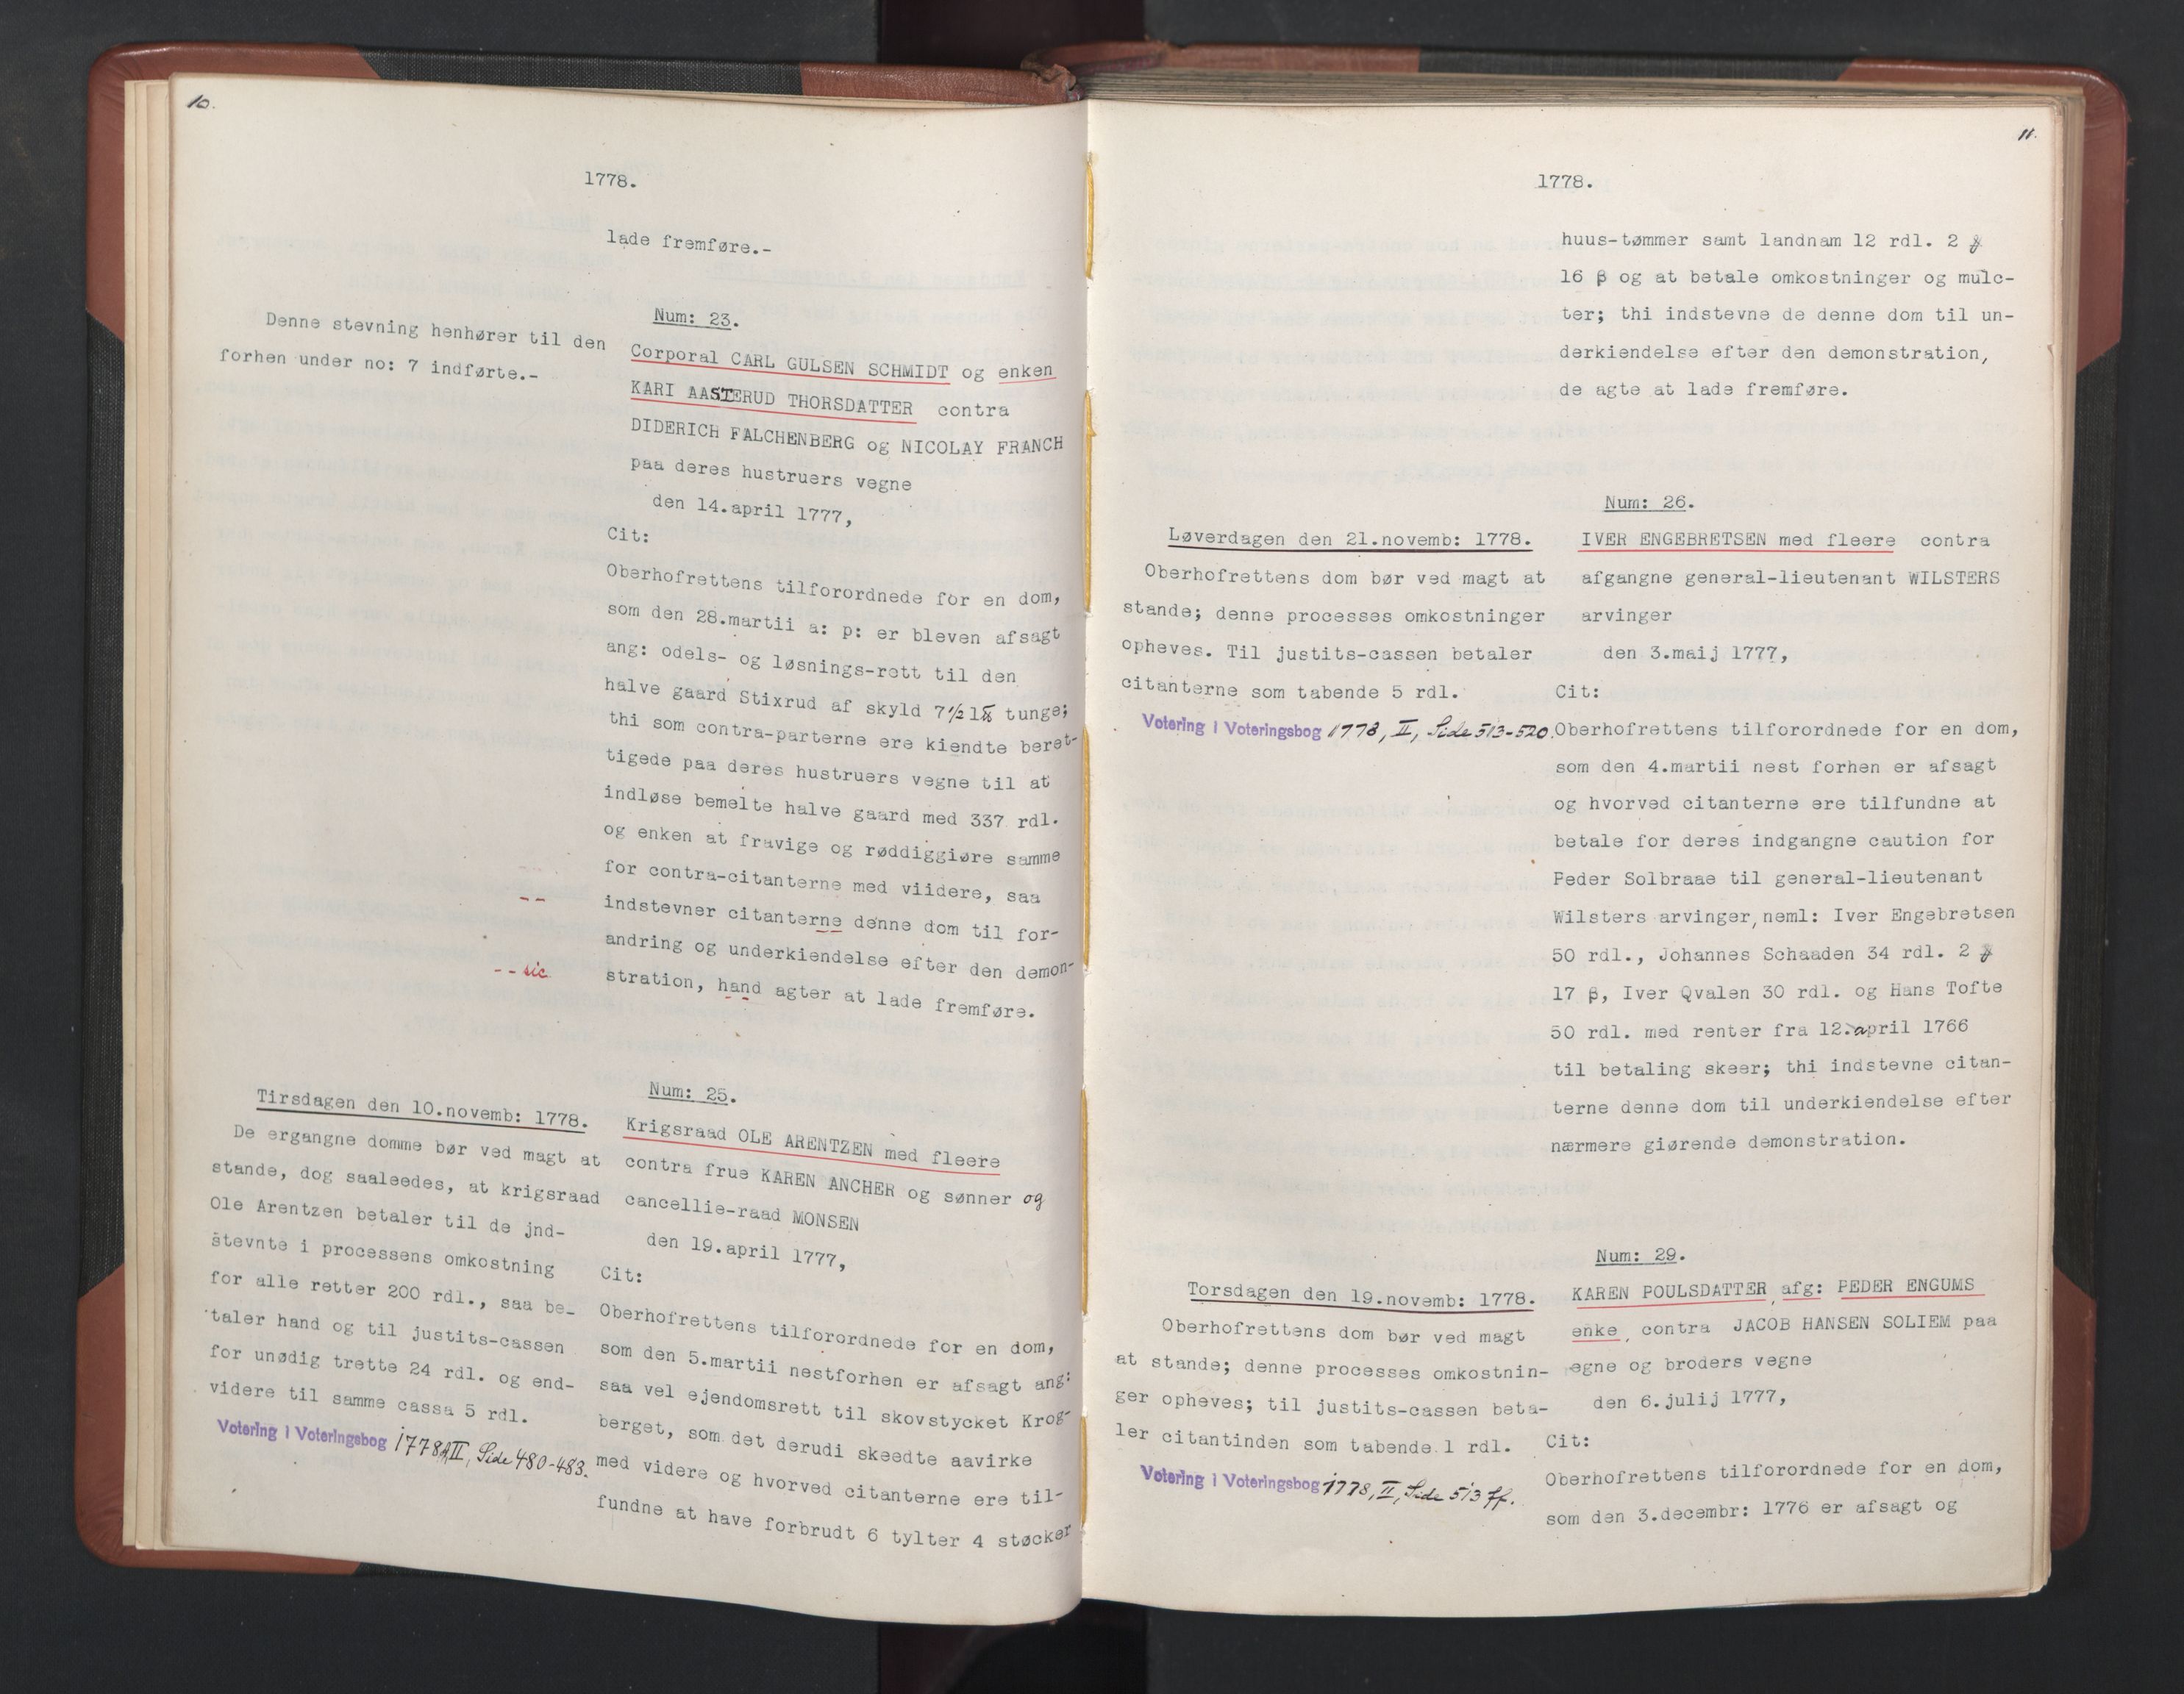 10.
1778.
lade fremføre.-
Denne stevning henhører til den
forhen under no: 7 indførte.-
Num: 23.
Corporal CARL GULSEN SCHMIDT og enken
KARI AASTERUD THORSDATTER contra
DIDERICH FALCHENBERG og NICOLAY FRANCH
paa deres hustruers vegne
den 14.april 1777,
Cit:
Oberhofrettens tilforordnede for en dom,
som den 28.martii a: p: er bleven afsagt
ang: odels- og løsnings-rett til den
halve gaard Stixrud af skyld 7½ 1℔ tunge;
thi som contra-parterne ere kiendte beret-
tigede paa deres hustruers vegne til at
indløse bemelte halve gaard med 337 rdl.
og enken at fravige og røddiggiøre samme
for contra-citanterne med viidere, saa
--
indstevner citanterne denne dom til for-
andring og underkiendelse efter den demon-
-- sic
stration, hand agter at lade fremføre.
Tirsdagen den 10.novemb: 1778.
De ergangne domme bør ved magt at
stande, dog saaleedes, at krigsraad
Ole Arentzen betaler til de jnd-
stevnte i processens omkostning
for alle retter 200 rdl., saa be-
taler hand og til justits-cassen
for unødig trette 24 rdl. og end-
videre til samme cassa 5 rdl.
Votering i Voteringsbog 1778, II, Side 480-483.
Num: 25.
Krigsraad OLE ARENTZEN med fleere
contra frue KAREN ANCHER og sønner og
cancellie-raad MONSEN
den 19.april 1777,
Cit:
Oberhofrettens tilforordnede for en dom,
som den 5.martii nestforhen er afsagt ang:
saa vel ejendomsrett til skovstycket Krog-
berget, som det derudi skeedte aavirke
med videre og hvorved citanterne ere til-
fundne at have forbrudt 6 tylter 4 støcker
11.
1778.
huus-tømmer samt landnam 12 rdl. 2
16 β og at betale omkostninger og mulc-
ter; thi indstevne de denne dom til un-
derkiendelse efter den demonstration,
de agte at lade fremføre.
Løverdagen den 21.novemb: 1778.
Oberhofrettens dom bør ved magt at
stande; denne processes omkostninger
opheves. Til justits-cassen betaler
citanterne som tabende 5 rdl.
Votering i Voteringsbog 1778, II, Side 513-520.
Num: 26.
IVER ENGEBRETSEN med fleere contra
afgangne general-lieutenant WILSTERS
arvinger
den 3.maij 1777,
Cit:
Oberhofrettens tilforordnede for en dom,
som den 4.martii nest forhen er afsagt
og hvorved citanterne ere tilfundne at
betale for deres indgangne caution for
Peder Solbraae til general-lieutenant
Wilsters arvinger, neml: Iver Engebretsen
50 rdl., Johannes Schaaden 34 rdl. 2
17 β, Iver Qvalen 30 rdl. og Hans Tofte
50 rdl. med renter fra 12.april 1766
til betaling skeer; thi indstevne citan-
terne denne dom til underkiendelse efter
nærmere giørende demonstration.
Torsdagen den 19.novemb: 1778.
Oberhofrettens dom bør ved magt
at stande; denne processes omkostnin-
ger opheves; til justits-cassen beta-
ler citantinden som tabende 1 rdl.
Votering i Voteringsbog 1778, II, Side 513 ff.
Num: 29.
KAREN POULSDATTER, afg: PEDER ENGUMS
enke, contra JACOB HANSEN SOLIEM paa
egne og broders vegne
den 6.julij 1777,
Cit:
Oberhofrettens tilforordnede for en dom,
som den 3.decembr: 1776 er afsagt og